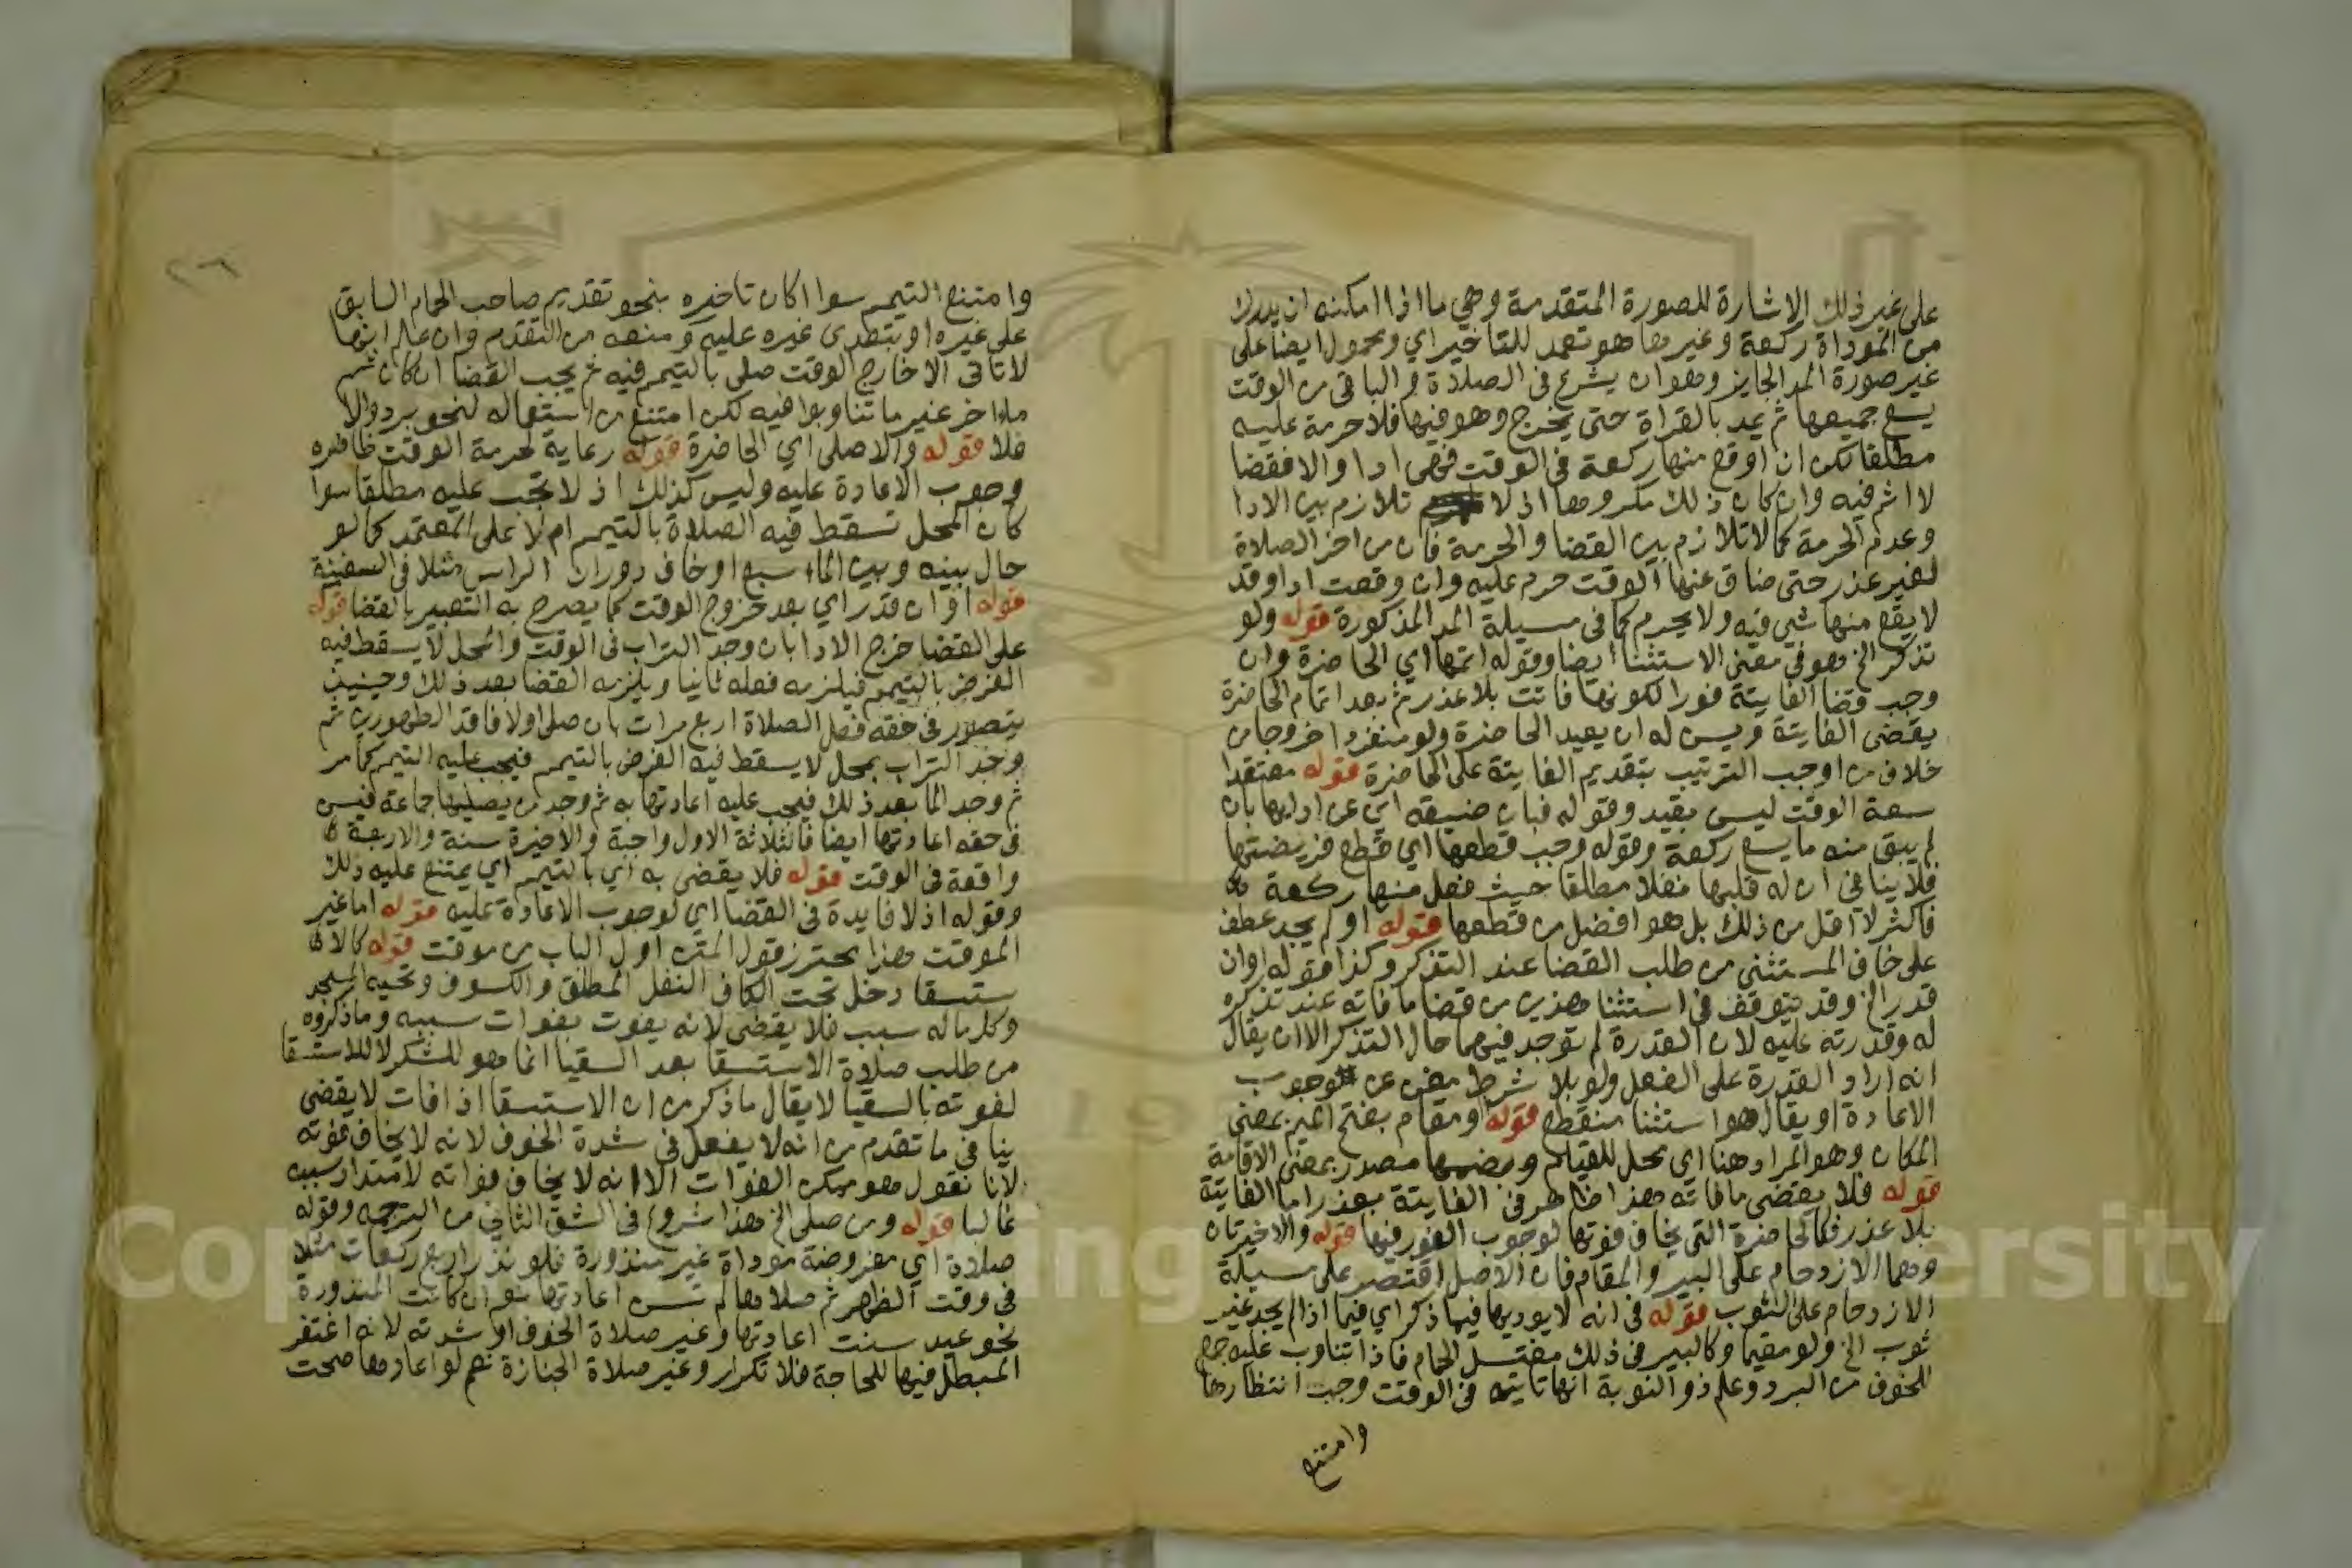 على غير ذلك الاشارة للصورة المتقدمة وهي ما اذا امكنه ان يدرك
من الموداة ركعة وغيرها هو تعمد للتاخير اي ومحمول ايضا على
غير صورة المد الجايز وهو ان يشرع في الصلاة و الباقي من الوقت
يسع جميعها ثم يمد بالقراة حتى يخرج وهو فيها فلا حرمة عليه
مطلقا لكن ان اوقع منها ركعة في الوقت فهي ادا والا فقضا
لا اثم فيه وان كان ذلك مكروها اذ لا تلازم بين الادا
وعدم الحرمة كما لا تلازم بين القضا والحرمة فان من اخر الصلاة
لغير عذر حتى ضاق عنها الوقت حرم عليه وان وقعت ادا وقد
لا يقع منها شي فيه ولا يحرم كما في مسيلة المد المذكورة قوله ولو
تذكر الخ وهو في معنى الاستثنا ايضا وقوله اتمها اي الحاضرة وان
وجب قضا الفايتة فورا لكونها فاتت بلا عذر ثم بعد اتمام الحاضرة
يقضي الفايتة ويسن له ان يعيد الحاضرة ولو منفردا خروجا من
خلاف من اوجب الترتيب بتقديم الفايتة على الحاضرة قوله معتقدا
سعة الوقت ليس بقيد وقوله فبان ضيقه اي عن ادايها بان
لم يبق منه ما يسع ركعة وقوله وجب قطعها اي قطع فرضيتها
فلا ينافي ان له قلبها نفلا مطلقا حيث فعل منها ركعة
فاكثر لا اقل من ذلك بل هو افضل من قطعها قوله او لم يجد عطف
على خاف المستثنى من طلب القضا عند التذكر وكذا قوله اوان
قدر الخ وقد يتوقف في استثنا هذين من قضا ما فاته عند تذكره
له وقدرته عليه لان القدرة لم توجد فيهما حال التذكر الا ان يقال
انه اراد القدرة على الفعل ولو بلا شرط مغن عن وجوب
الاعادة او يقال هو استثنا منقطع قوله او مقام بفتح الميم بمعنى
المكان وهو المراد هنا اي محل للقيام وبضمها مصدر بمعنى الاقامة
قوله فلا يقضي ما فاته هذا ظاهر في الفايتة بعذر اما الفايتة
بلا عذر فكالحاضرة التي يخاف فوتها لوجوب الفور فيها قوله والاخيرتان
وهما الازدحام على البير والمقام فان الاصل اقتصر على مسيلة
الازدحام على الثوب قوله في انه لا يوديها فيها ذكر اي فيما اذا لم يجد غير
ثوب الخ ولو مقيما وكالبير في ذلك مغتسل الحمام فاذا تناوب عليه جمع
للخوف من البرد وعلم ذو النوبة انها تاتيه في الوقت وجب انتظارها
وامتنع
وامتنع التيمم سوا اكان تاخيره بنحو تقديم صاحب الحمام السابق
على غيره او بتعدي غيره عليه ومنعه من التقدم وان علم انها
لا تاتي الا خارج الوقت صلى بالتيمم فيه ثم يجب القضا ان كان ثم
ماء اخر غير ما تناوبوا فيه لكن امتنع من استعماله لنحو برد والا
فلا قوله والا صلى اي الحاضرة قوله رعاية لحرمة الوقت ظاهره
وجوب الاعادة عليه وليس كذلك اذ لا تجب عليه مطلقا سوا
كان المحل تسقط فيه الصلاة بالتيمم ام لا على المعتمد كما لو
حال بينه وبين الماء سبع او خاف دوران الراس مثلا في السفينة
قوله او ان قدر اي بعد خروج الوقت كما يصرح به التعبير بالقضا قوله
على القضا خرج الادا بان وجد التراب في الوقت والمحل لا يسقط فيه
الفرض بالتيمم فيلزمه فعله ثانيا ويلزمه القضا بعد ذلك وحينيذ
يتصور في حقه فعل الصلاة اربع مرات بان صلى اولا فاقد الطهورين ثم
وجد التراب بمحل لا يسقط فيه الفرض بالتيمم فيجب عليه التيمم كما مر
ثم وجد الما بعد ذلك فيجب عليه اعادتها به ثم وجد من يصليها جماعة فيسن
في حقه اعادتها ايضا فالثلاثة الاول واجبة والاخيرة سنة والاربعة
واقعة في الوقت قوله فلا يقضي به اي بالتيمم اي يمتنع عليه ذلك
وقوله اذ لا فايدة في القضا اي لوجوب الاعادة عليه قوله اما غير
الموقت هذا محترز قول المتن اول الباب من موقت قوله كالا
ستسقا دخل تحت الكاف النفل المطلق والكسوف وتحية المسجد
وكل ما له سبب فلا يقضى لانه يفوت بفوات سببه وما ذكروه
من طلب صلاة الاستسقا بعد السقيا انما هو للشكر لا للاستسقا
لفوته بالسقيا لا يقال ما ذكر من ان الاستسقا اذا فات لا يقضى
ينافي ما تقدم من انه لا يفعل في شدة الخوف لانه لا يخاف فوته
لانا نقول هو ممكن الفوات الا انه لا يخاف فواته لامتداد سببه
غالبا قوله ومن صلى الخ هذا شروع في الشق الثاني من الترجمه وقوله
صلاة اي مفروضة موداة غير منذورة فلو نذر اربع ركعات مثلا
في وقت الظهر ثم صلاها لم تسن اعادتها نعم ان كانت المنذورة
نحو عيد سنت اعادتها وغير صلاة الخوف او شدته لانه اغتفر
المبطل فيها للحاجة فلا تكرار وغير صلاة الجنازة نعم لو اعادها صحت